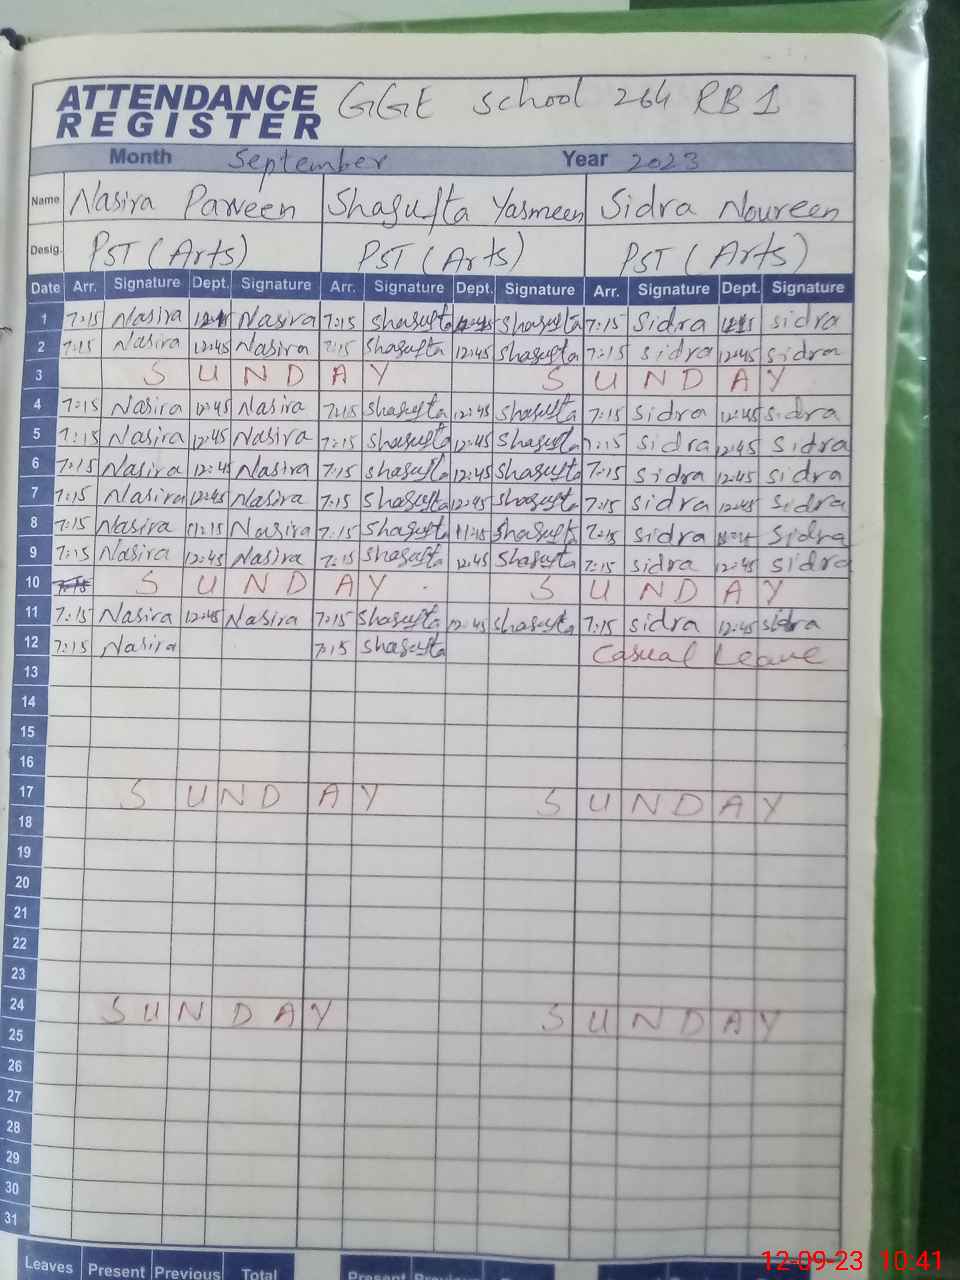 ATTENDANCE REGISTER GGE School 264 RB 1
Month September Year 2023
Name Nasira Parveen Shagufta Yasmeen Sidra Noureen
Desig. PST (Arts) PST (Arts) PST (Arts)
Date Arr. Signature Dept. Signature Arr. Signature Dept. Signature Arr. Signature Dept. Signature
1 7:15 Nasira Nasira 7:15 Shagufta Shagufta 7:15 Sidra Sidra
2 7:15 Nasira 12:45 Nasira 7:15 Shagufta 12:45 Shagufta 7:15 Sidra 12:45 Sidra
3 SUNDAY SUNDAY
4 7:15 Nasira 12:45 Nasira 7:15 Shagufta 12:45 Shagufta 7:15 Sidra 12:45 Sidra
5 7:15 Nasira 12:45 Nasira 7:15 Shagufta 12:45 Shagufta 7:15 Sidra 12:45 Sidra
6 7:15 Nasira 12:45 Nasira 7:15 Shagufta 12:45 Shagufta 7:15 Sidra 12:45 Sidra
7 7:15 Nasira 12:45 Nasira 7:15 Shagufta 12:45 Shagufta 7:15 Sidra 12:45 Sidra
8 7:15 Nasira 11:15 Nasira 7:15 Shagufta 11:15 Shagufta 7:15 Sidra Sidra
9 7:15 Nasira 12:45 Nasira 7:15 Shagufta 12:45 Shagufta 7:15 Sidra 12:45 Sidra
10 SUNDAY SUNDAY
11 7:15 Nasira 12:45 Nasira 7:15 Shagufta 12:45 Shagufta 7:15 Sidra 12:45 Sidra
12 7:15 Nasira 7:15 Shagufta Casual Leave
13
14
15
16
17 SUNDAY SUNDAY
18
19
20
21
22
23
24 SUNDAY SUNDAY
25
26
27
28
29
30
31
Leaves Present Previous Total Present Previous
12-09-23 10:41